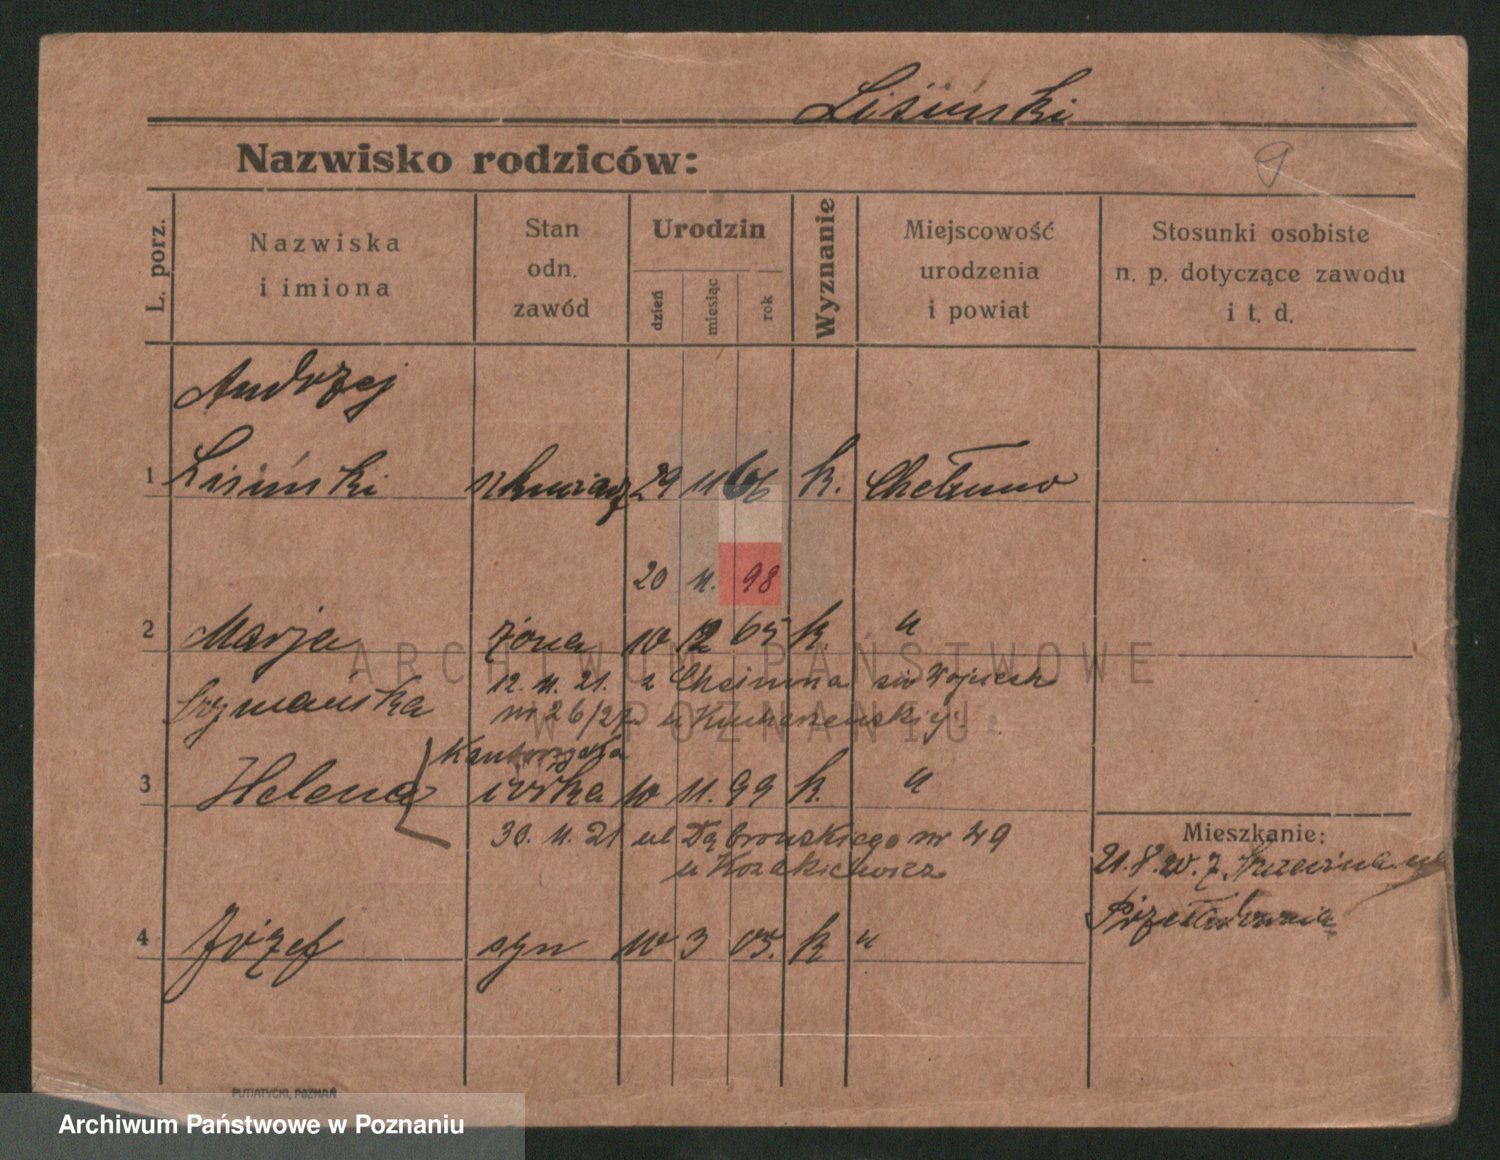 Lisiński
Nazwisko rodziców:
9
L. porz.
Nazwiska
i imiona
Stan
odn.
zawód
Urodzin
dzień
miesiąc
rok
Wyznanie
Miejscowość
urodzenia
i powiat
Stosunki osobiste
n. p. dotyczące zawodu
i t. d.
Andrzej
1 Lisiński 29 11 66 k. Chełmno
20 11. 98
2 Marja żona 10 12 65 k. "
ARCHIWUM PAŃSTWOWE
W POZNANIU
Szymańska 12. 11. 21. z Chełmna św Wojciech
nr 26/27 u
3 Helena córka 10 11. 99 k. "
30. 11. 21 ul Dąbrowskiego nr 49
u Kozakiewicz
Mieszkanie:
21. 8. 20. z
4 Józef syn 10 3 05. k "
PUTIATYCKI, POZNAŃ
Archiwum Państwowe w Poznaniu